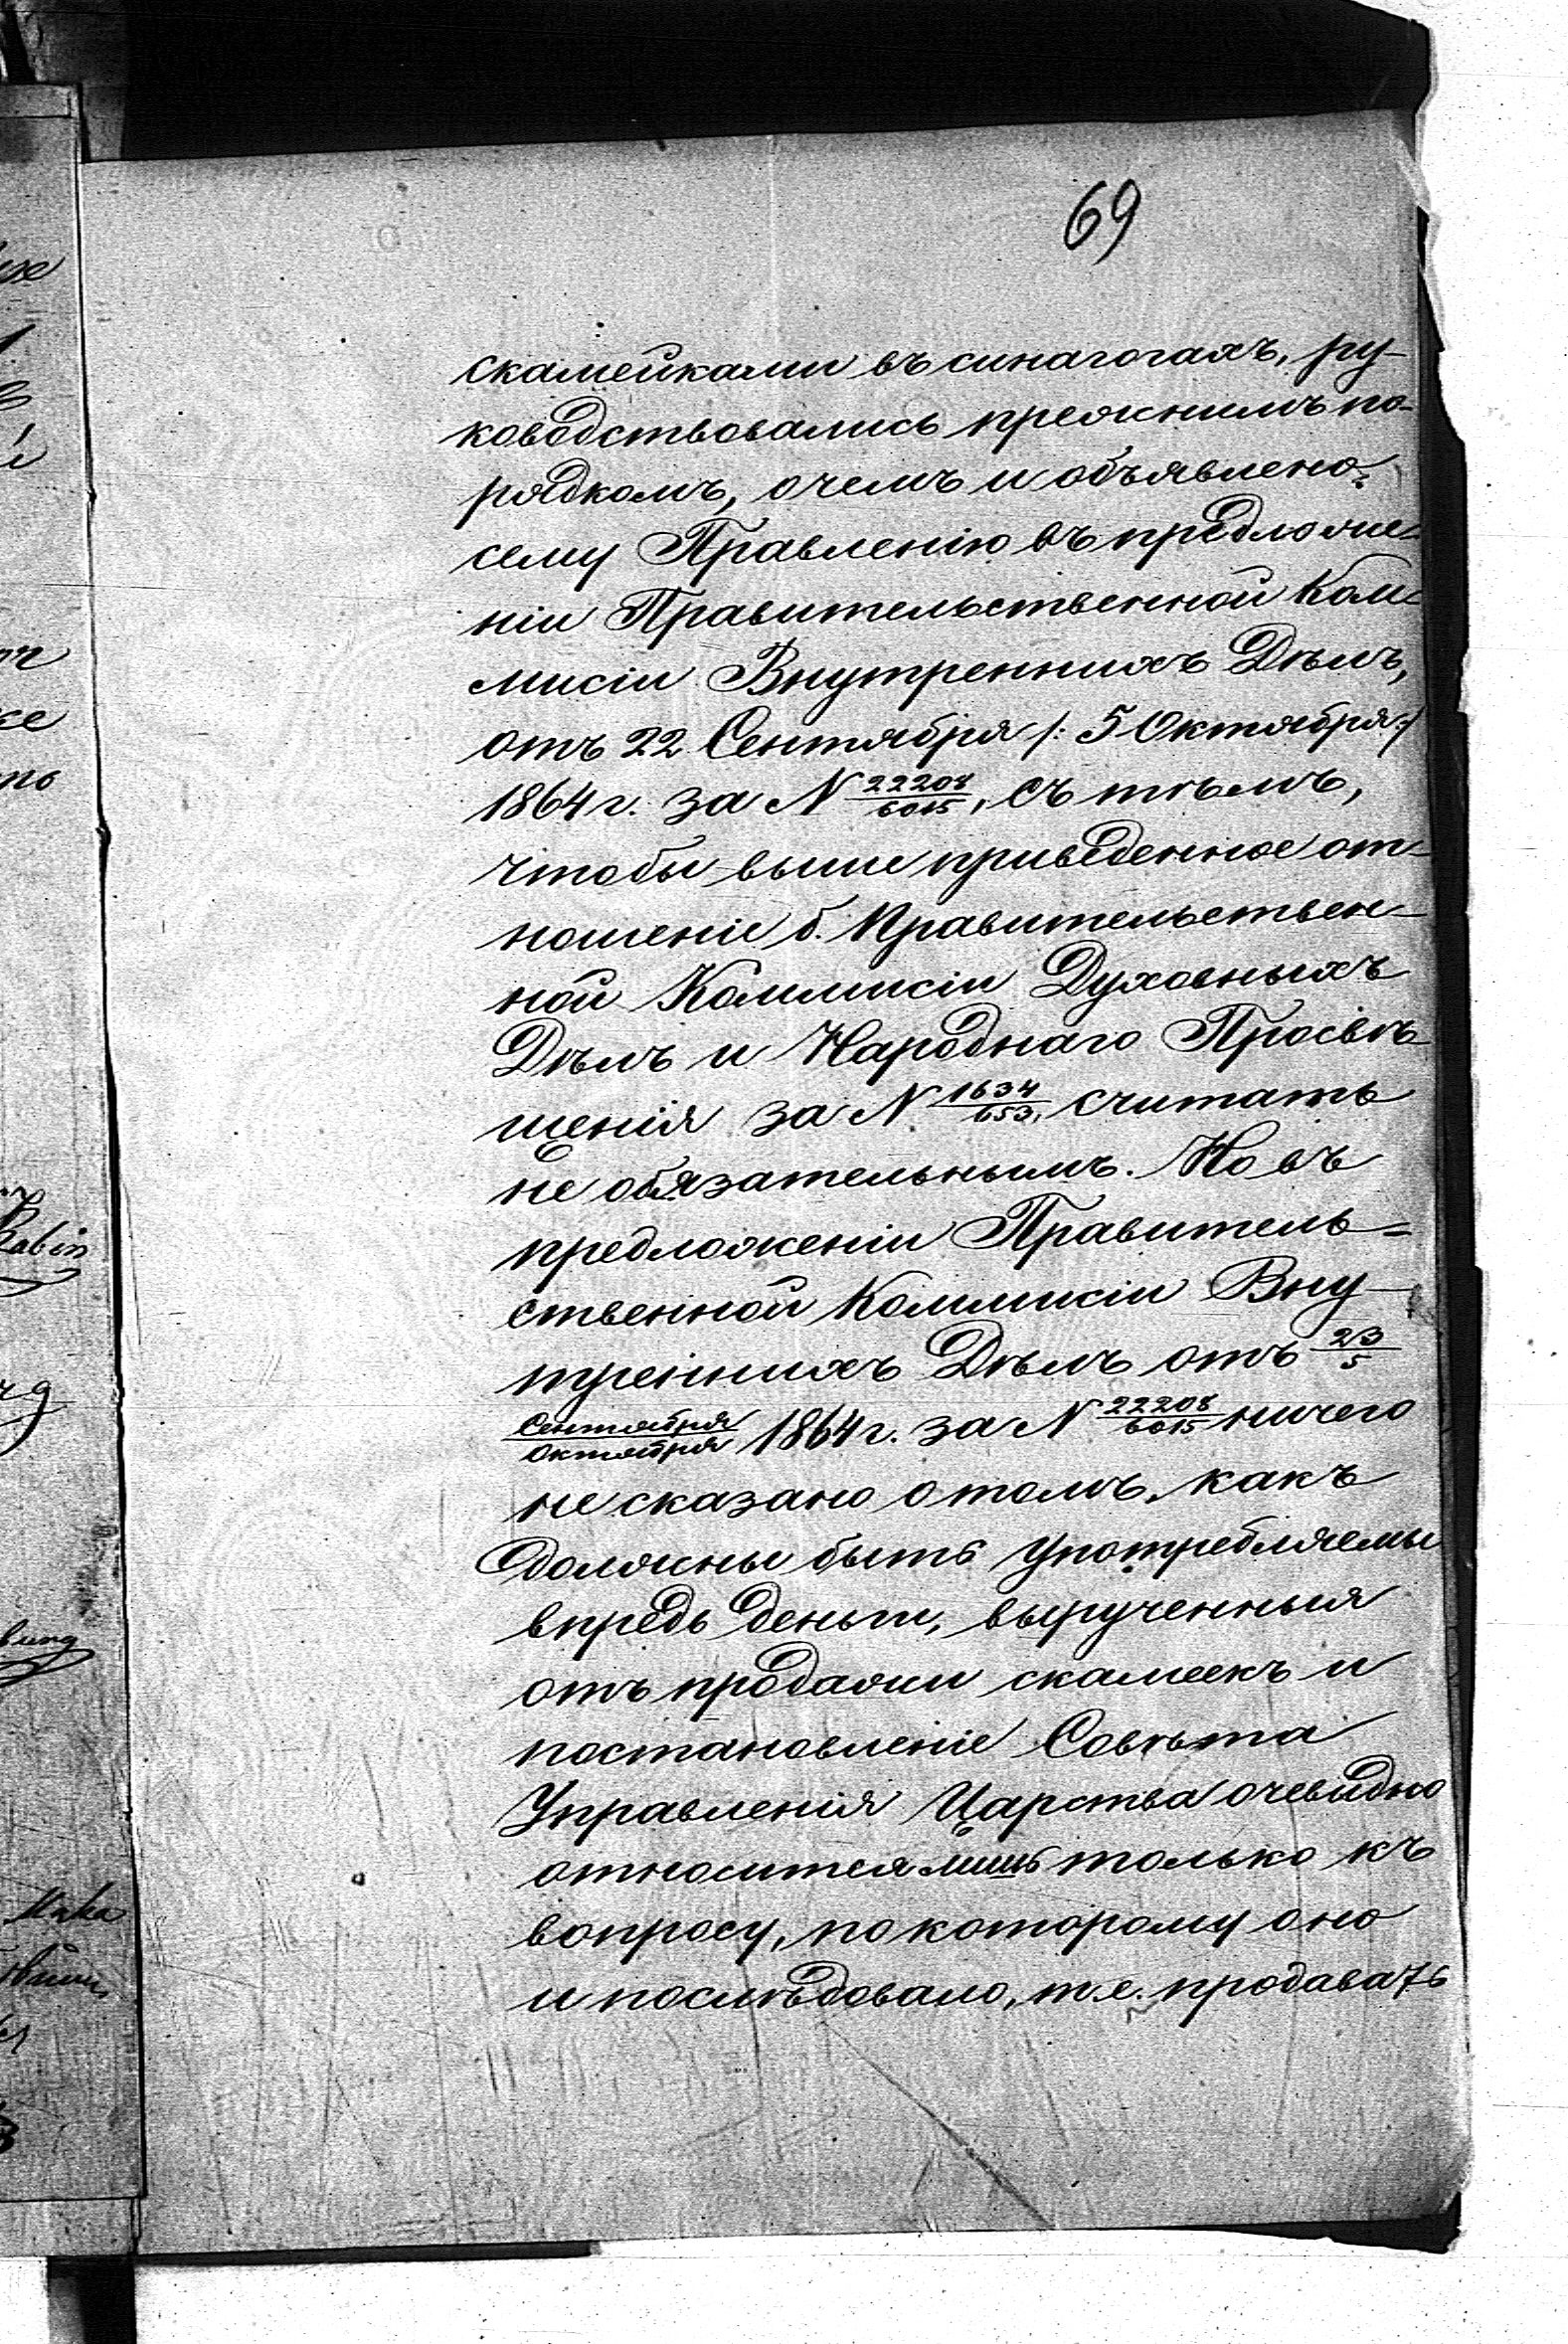 69
скамейками въ синагогахъ, ру-
ководствовались прежнимъ по-
рядкомъ, о чемъ и объявлено
сему Правленію въ предложе-
ніи Правительственной Ком-
мисіи Внутреннихъ Дѣлъ,
отъ 22 Сентября /: 5 Октября :/
1864 г. за N 22208/6015, съ тѣмъ,
чтобы выше приведенное от-
ношеніе б. Правительствен-
ной Коммисіи Духовныхъ
Дѣлъ и Народнаго Просвѣ-
щенія за N 1634/653, считать
не обязательнымъ. Но въ
предложеніи Правитель-
ственной Коммисіи Вну-
треннихъ Дѣлъ отъ 23/5
Сентября/Октября 1864 г. за N 22208/6015 ничего
не сказано о томъ, какъ
должны быть употребляемы
впредь деньги, вырученныя
отъ продажи скамеекъ и
постановленіе Совѣта
Управленія Царства очевидно
относится лишь только къ
вопросу, по которому оно
и послѣдовало, т.е. продавать
Rabin